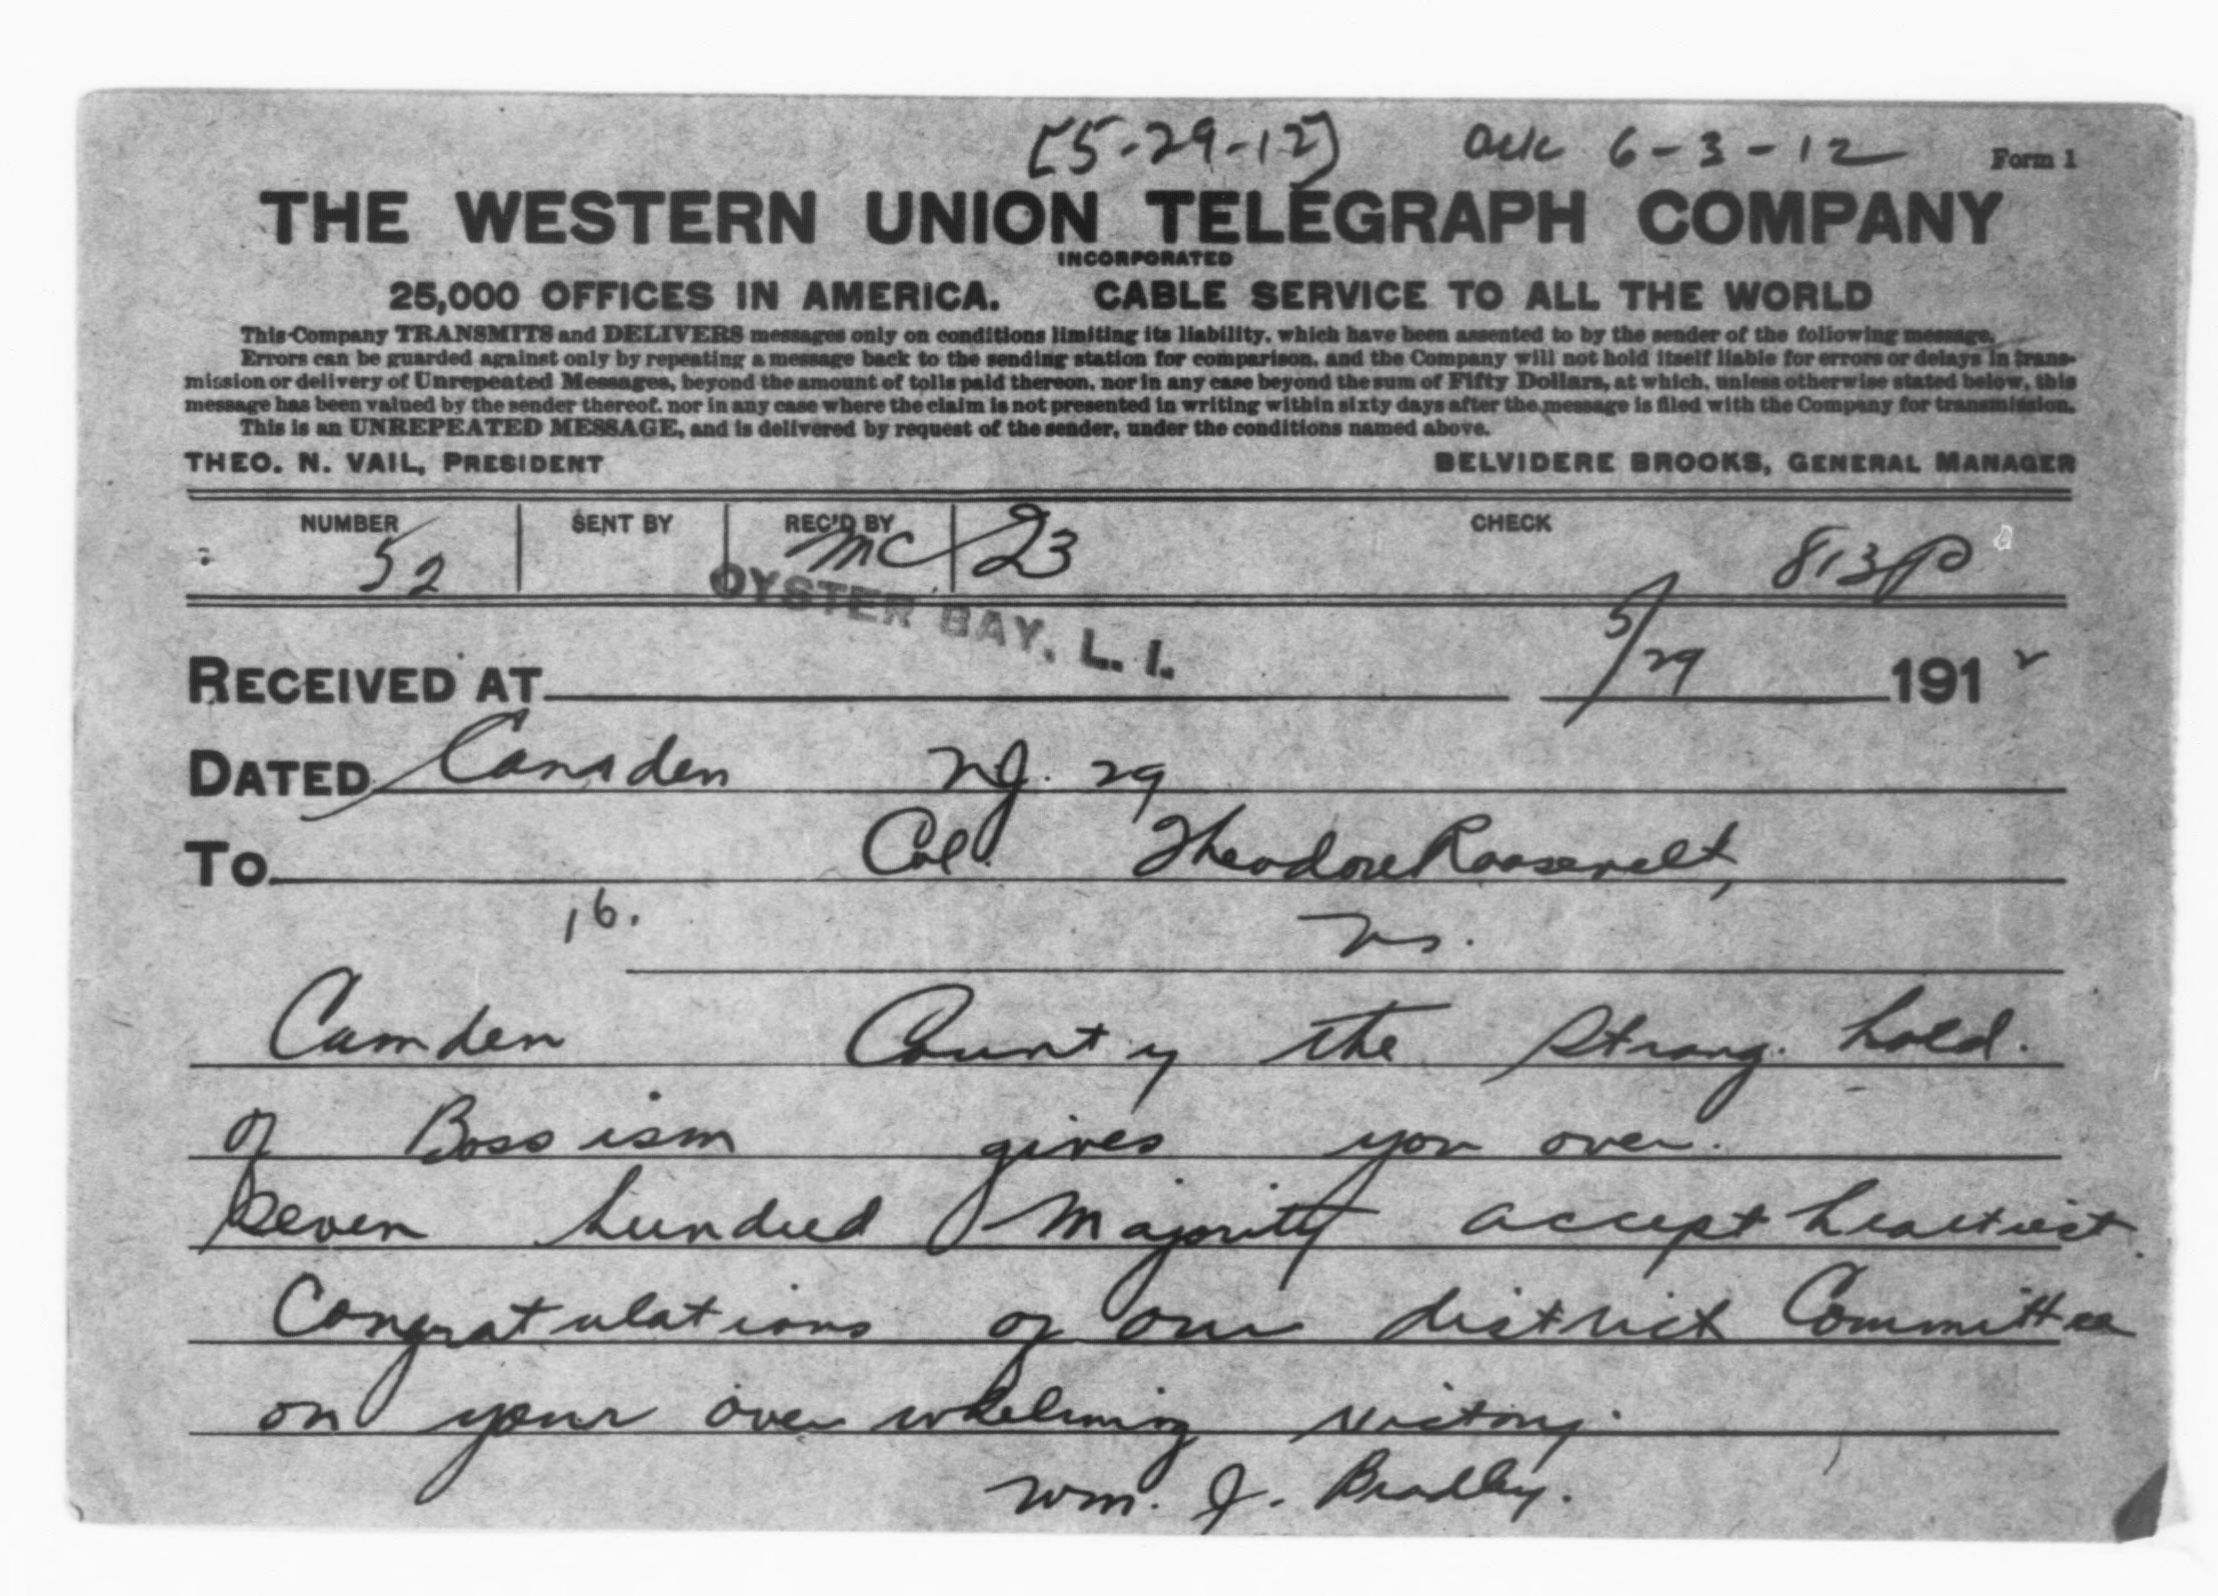 [5-29-12] Ack 6-3-12 Form 1
THE WESTERN UNION TELEGRAPH COMPANY
INCORPORATED
25,000 OFFICES IN AMERICA. CABLE SERVICE TO ALL THE WORLD
This Company TRANSMITS and DELIVERS messages only on conditions limiting its liability, which have been assented to by the sender of the following message.
Errors can be guarded against only by repeating a message back to the sending station for comparison, and the Company will not hold itself liable for errors or delays in trans-
mission or delivery of Unrepeated Messages, beyond the amount of tolls paid thereon, nor in any case beyond the sum of Fifty Dollars, at which, unless otherwise stated below, this
message has been valued by the sender thereof, nor in any case where the claim is not presented in writing within sixty days after the message is filed with the Company for transmission.
This is an UNREPEATED MESSAGE, and is delivered by request of the sender, under the conditions named above.
THEO. N. VAIL, PRESIDENT BELVIDERE BROOKS, GENERAL MANAGER
NUMBER SENT BY REC'D BY CHECK
52 MC 23 813P
OYSTER BAY, L. I.
RECEIVED AT 5/29 1912
DATED Camden NJ. 29
To Col. Theodore Roosevelt,
16.
Camden County the Strong hold.
of Bossism gives you over.
Seven hundred Majority accept heartiest
Congratulations of our district Committee
on your over whelming victory.
Wm. J. Bradley.